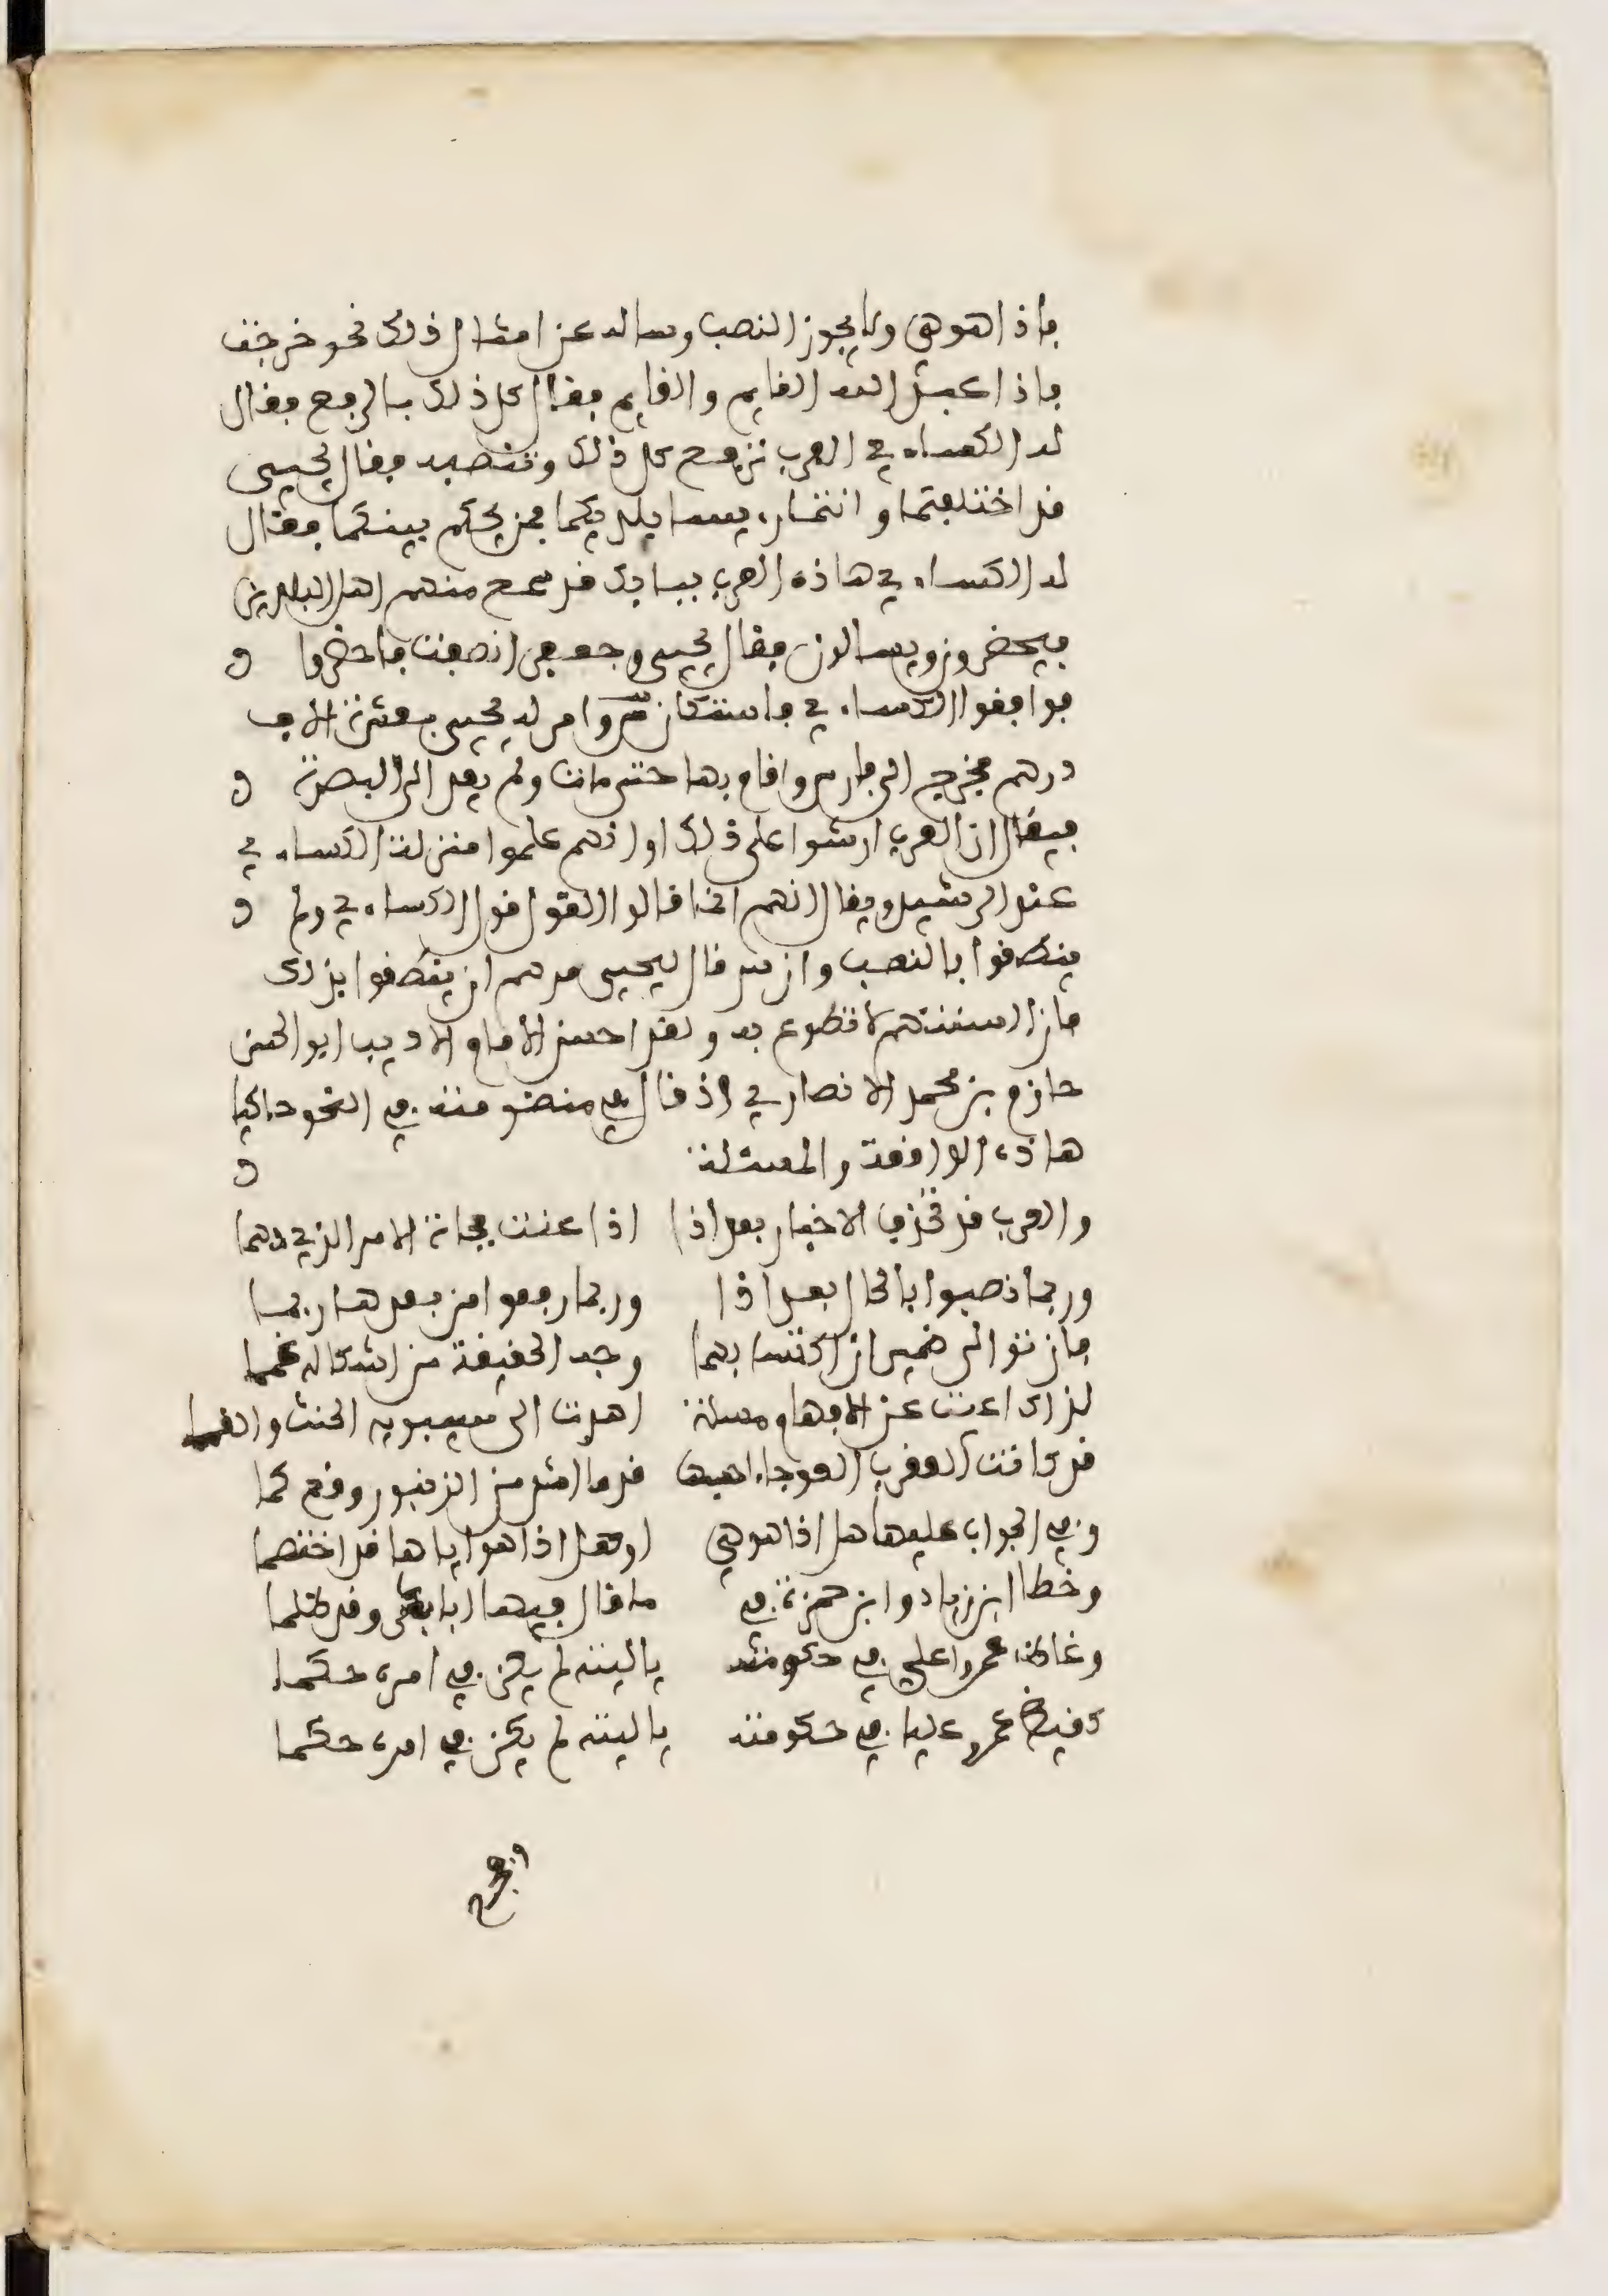 فاذا هو هي ولا يجوز النصب وساله عن امثال ذلك نحو خرجت
فاذا عبد الله القايم والقايم فقال كل ذلك بالرفع فقال
له الكساءي العرب ترفع كل ذلك وتنصبه فقال يحيى
قد اختلفتما وانتما رييسا بلديكما فمن يحكم بينكما فقال
له الكساءي هاذه العرب ببابك قد سمع منهم اهل البلدين
فيحضرون ويسالون فقال يحيى وجعفر انصفت فاحضروا
فوافقوا الكساءي فاستكان وامر له يحيى بعشرة الاف
درهم فخرج الى فارس واقام بها حتى مات ولم يعد الى البصرة
فيقال ان العرب ارشوا على ذلك او انهم علموا منزلة الكساءي
عند الرشيد ويقال انهم انما قالوا القول قول الكساءي ولم
ينطقوا بالنصب وان س قال ليحيى مرهم ان ينطقوا بذلك
فان السنتهم لا تطوع به ولقد احسن الامام الاديب ابو الحسن
حازم بن محمد الانصاري اذ قال في منظومته في النحو حاكيا
هاذه الواقعة والمسئلة
والعرب قد تحذف الاخبار بعد اذا اذا عنت فجاة الامر الذي دهما
وربما نصبوا بالحال بعد اذا وربما رفعوا من بعدها ربما
فان توالى ضميران اكتسا بهما وجه الحقيقة من اشكاله غمما
لذاك اعيت على الافهام مسالة اهدت الى سيبويه الحتف والغمما
قد كانت العقرب العوجاء قدما اشد من الزنبور وقع حما
وفي الجواب عليها هل اذا هو هي او هل اذا هو اياها قد اختصما
وخطا ابن زياد وابن حمزة في ما قال فيها ابا بشر وقد ظلما
وغاظ عمرا علي في حكومته يا ليته لم يكن في امره حكما
كغيظ عمرو عليا في حكومته يا ليته لم يكن في امره حكما